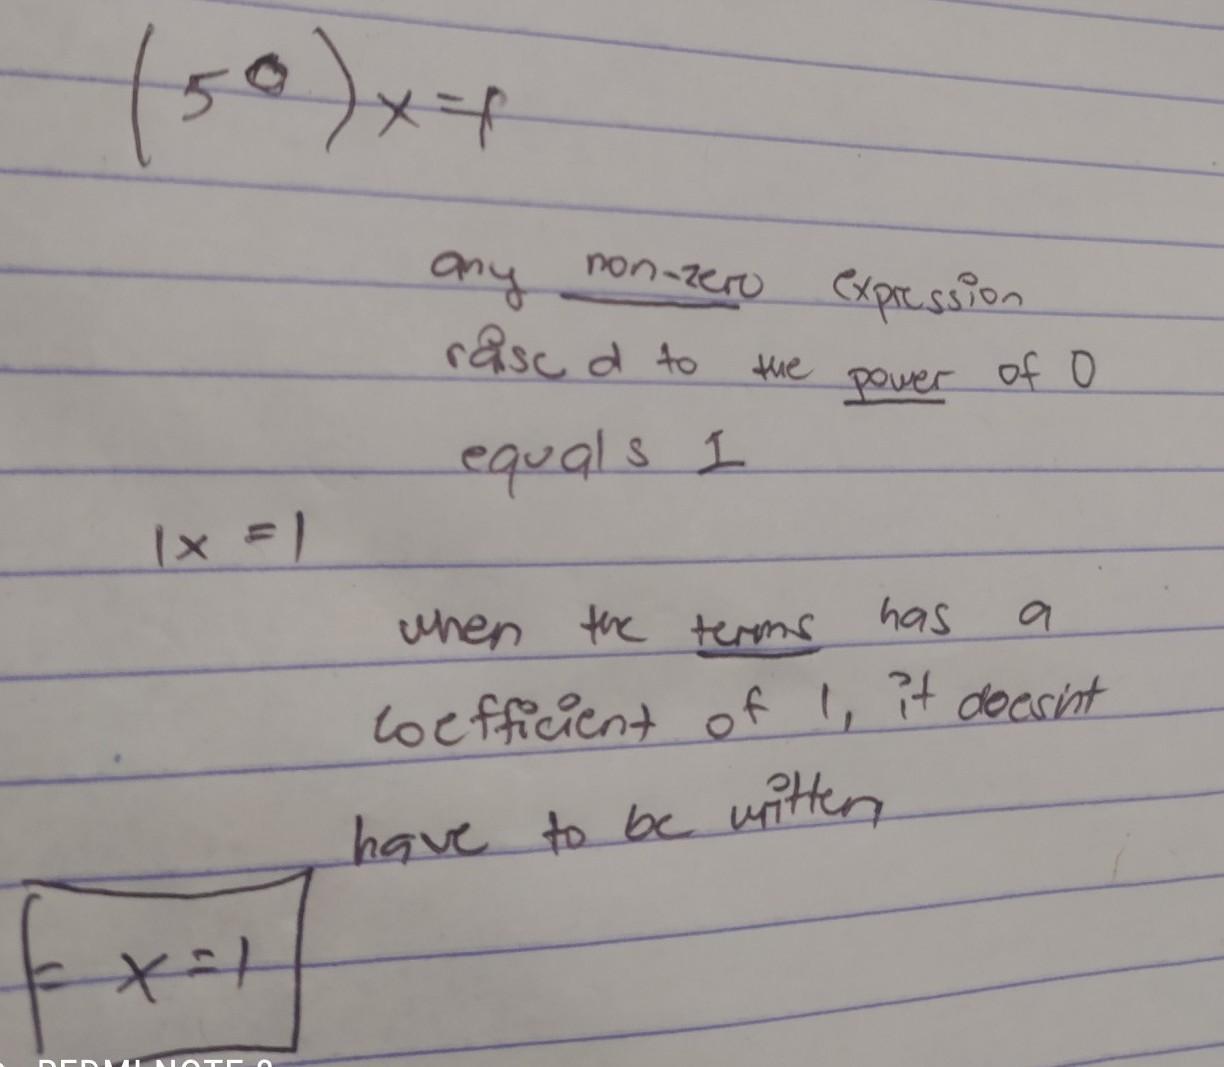 (5⁰)x=1
any non-zero expression
raised to the power of 0
equals 1
1x = 1
when the terms has a
coefficient of 1, it doesn't
have to be written
= x = 1
REDMI NOTE 8